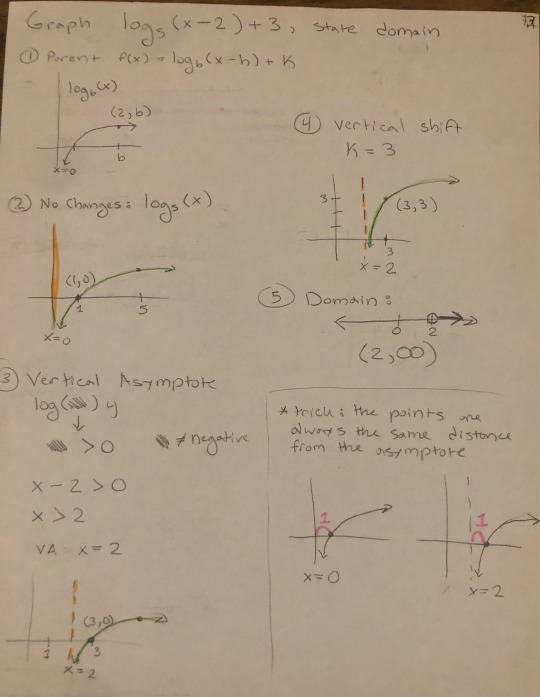 Graph log₅(x-2)+3, state domain
① Parent f(x) = log_b(x-h) + K
log_b(x)
(2, b)
b
x=0
② No Changes: log₅(x)
(1,0)
1
5
x=0
③ Vertical Asymptote
log( ) y
> 0
≠ negative
x - 2 > 0
x > 2
VA x = 2
(3,0)
1
3
x=2
④ Vertical shift
K = 3
3
(3,3)
3
x = 2
⑤ Domain:
0
2
(2,∞)
* trick: the points are
always the same distance
from the asymptote
1
x=0
1
x=2